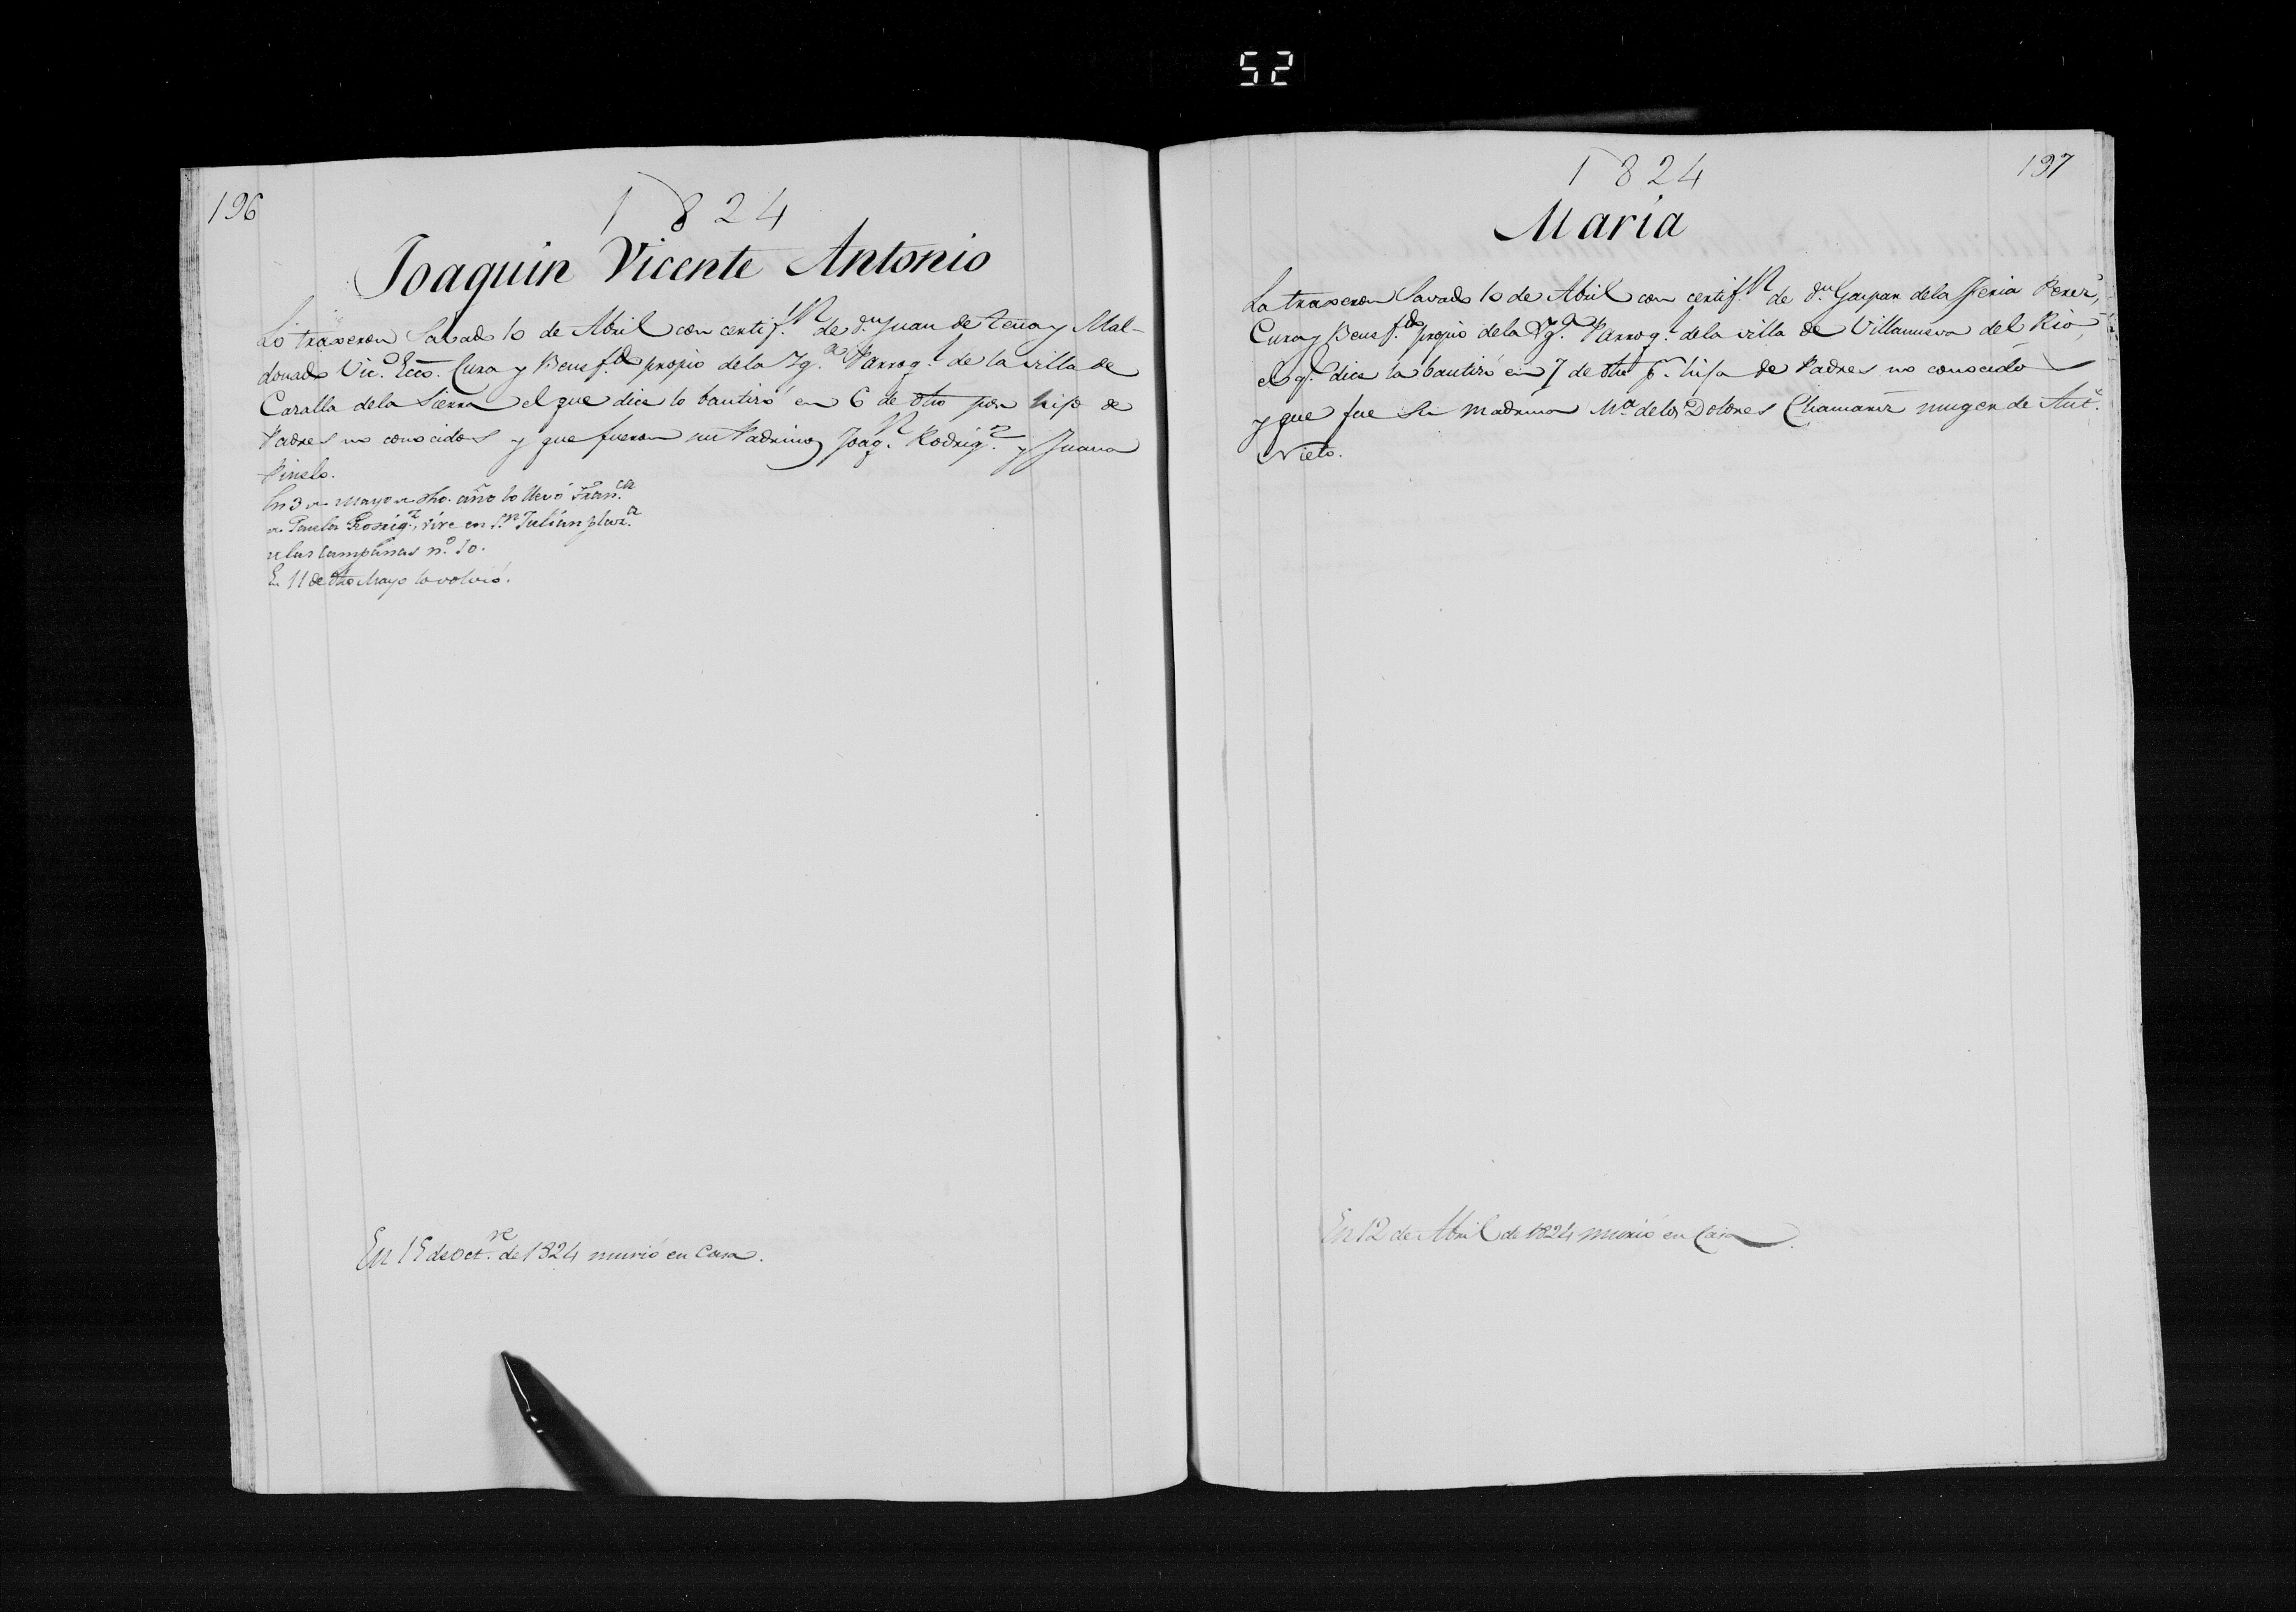 52
196
1824
Joaquin Vicente Antonio
Lo traxeron Sabado 10 de Abril con certif.on de d.n Juan de Tena y Mal-
donado Vic.o Ecco. Cura y Benef.do propio dela Yg.a Parroq.l de la villa de
Cazalla dela Sierra el que dice lo bautizó en 6 de dho por hijo de
Padres no conocidos y que fueron sus Padrinos Joaq.n Rodrig.z y Juana
Pinelo.
En 3 de Mayo de dho. año lo llevó Fran.ca
de Paula Rodrig.z, vive en S.n Julián plaz.a
de las campanas n.o 10.
En 11 de dho Mayo lo volvió.
En 15 de Oct.re de 1824 murió en Casa.
197
1824
Maria
La traxeron Savado 10 de Abril con certif.on de d.n Gaspar dela Feria Perez,
Cura y Benef.do propio dela Yg.a Parroq.l dela villa de Villanueva del Rio,
el q.e dice la bautizó en 7 de dho p.r hija de Padres no conocido
y que fue su madrina M.a delos Dolores muger de Ant.o
Nieto.
En 12 de Abril de 1824 murió en Casa.